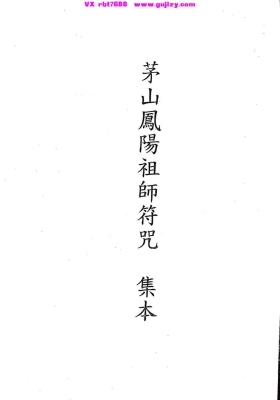 VX rbt7688 www.gujlzy.com
茅山鳳陽祖師符咒 集本